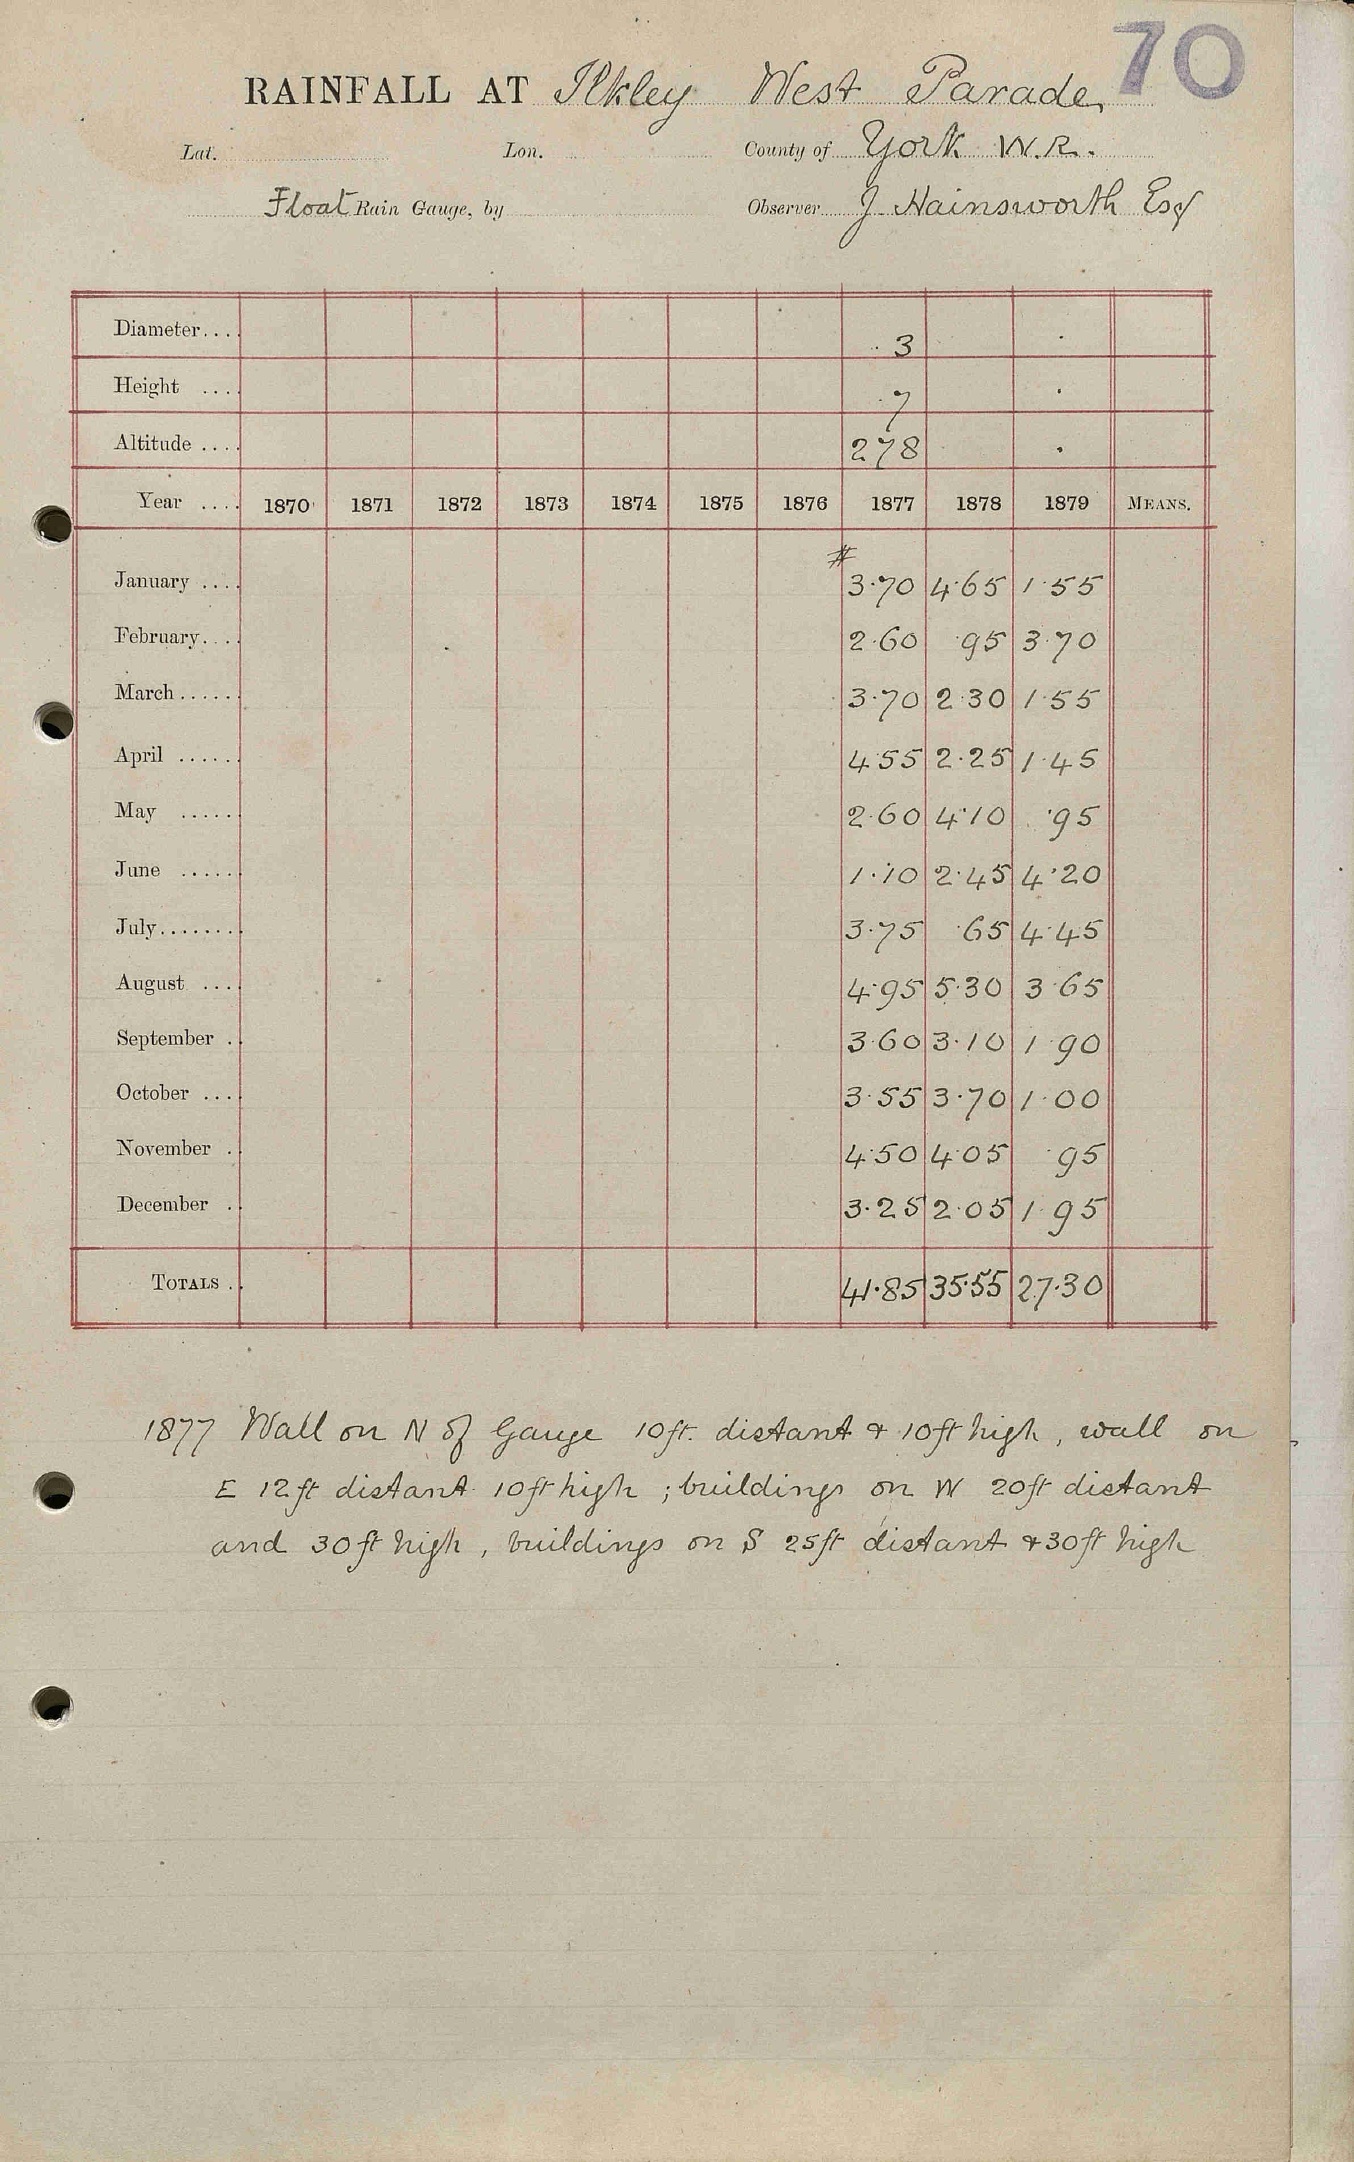 70
RAINFALL AT Ilkley West Parade,
Lat. Lon. County of York W.R.
Float Rain Gauge, by Observer J. Hainsworth Esq
Diameter.... 3 .
Height .... 7 .
Altitude .... 278 .
Year .... 1870 1871 1872 1873 1874 1875 1876 1877 1878 1879 MEANS.
#
January .... 3.70 4.65 1.55
February.... 2.60 .95 3.70
March...... 3.70 2.30 1.55
April ...... 4.55 2.25 1.45
May ...... 2.60 4.10 .95
June ..... 1.10 2.45 4.20
July........ 3.75 .65 4.45
August .... 4.95 5.30 3.65
September .. 3.60 3.10 1.90
October .... 3.55 3.70 1.00
November .. 4.50 4.05 .95
December .. 3.25 2.05 1.95
TOTALS .. 41.85 35.55 27.30
1877 Wall on N of Gauge 10ft. distant & 10ft high, wall on
E 12ft distant 10ft high; buildings on W 20ft distant
and 30ft high, buildings on S 25ft distant & 30ft high